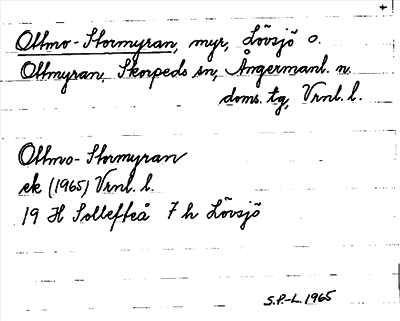 Ollmo-Stormyran, myr, Lövsjö o.
Ollmyran, Skorpeds sn, Ångermanl. n.
doms. tg, Vrnl. l.
Ollmo-Stormyran
ek (1965) Vrnl. l.
19 H Sollefteå 7 h Lövsjö
S.P.-L. 1965